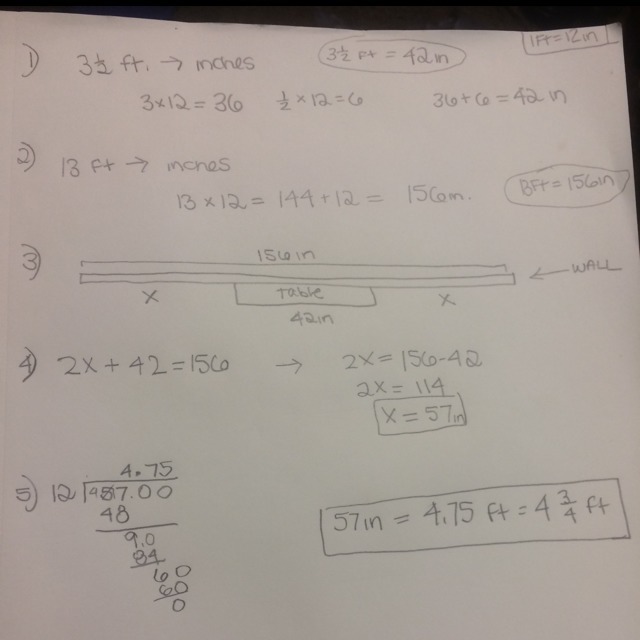 1ft=12in
1) 3½ ft. → inches
3½ ft = 42in
3×12=36 ½×12=6 36+6=42 in
2) 13 ft → inches
13×12= 144+12= 156in.
13ft=156in
3) 156in
← WALL
x table x
42in
4) 2x+42=156 → 2x=156-42
2x= 114
x=57in
4.75
5) 12 57.00
48
9.0
84
60
60
0
57in = 4.75 ft = 4 ¾ ft